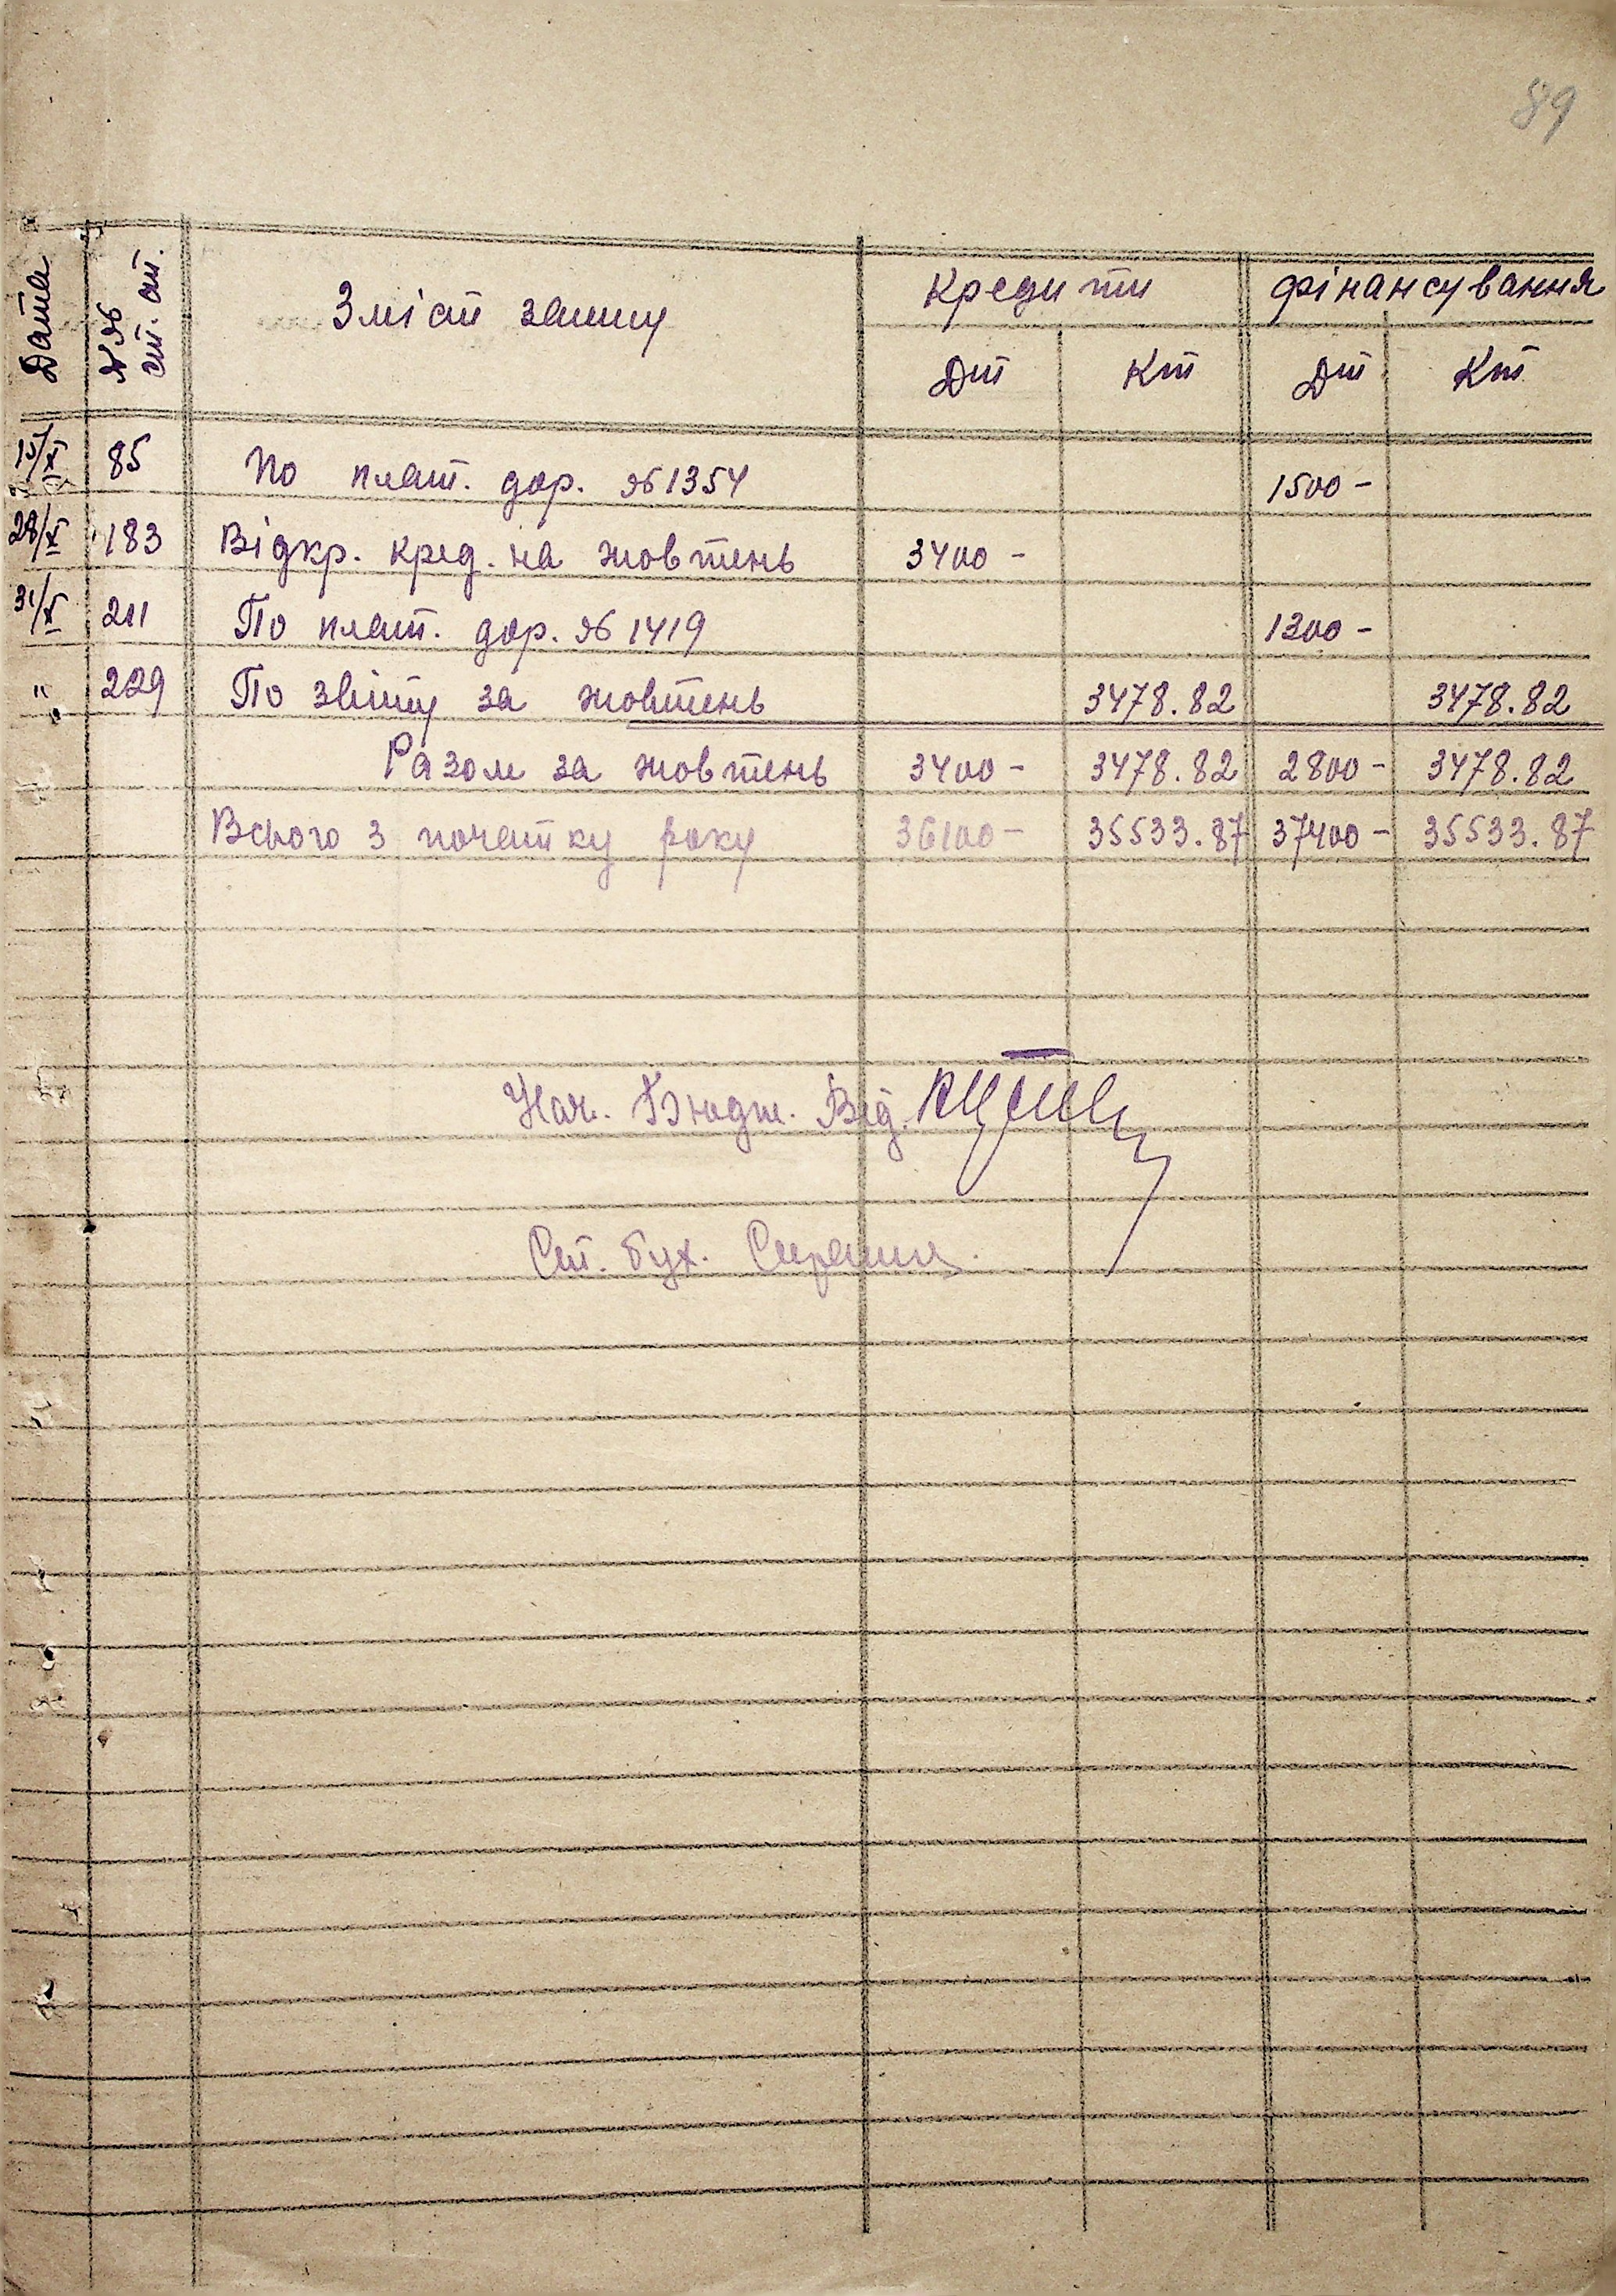 89
Дата №№ ст. ст. Зміст запису Кредити Фінансування
Дт Кт Дт Кт
15/X 85 По плат. дор. № 1354 1500 -
28/X 183 Відкр. кред. на жовтень 3400 -
31/X 211 По плат. дор. № 1419 1300 -
" 229 По звіту за жовтень 3478.82 3478.82
Разом за жовтень 3400 - 3478.82 2800 - 3478.82
Всього з початку року 36100 - 35533.87 37400 - 35533.87
Нач. Бюдж. Від.
Ст. бух.